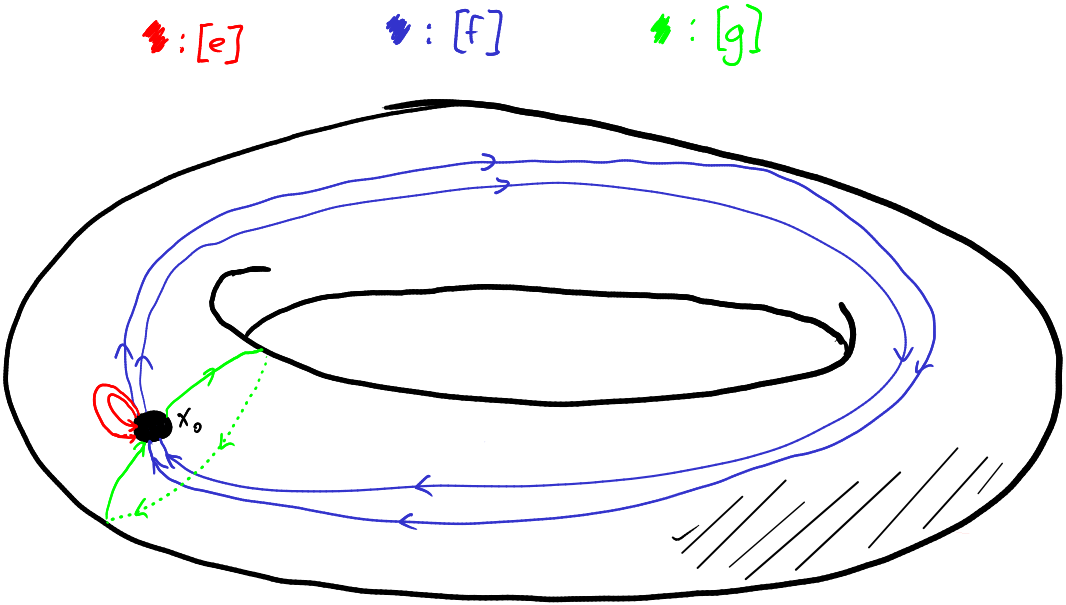 : [e] : [f] : [g]
x₀